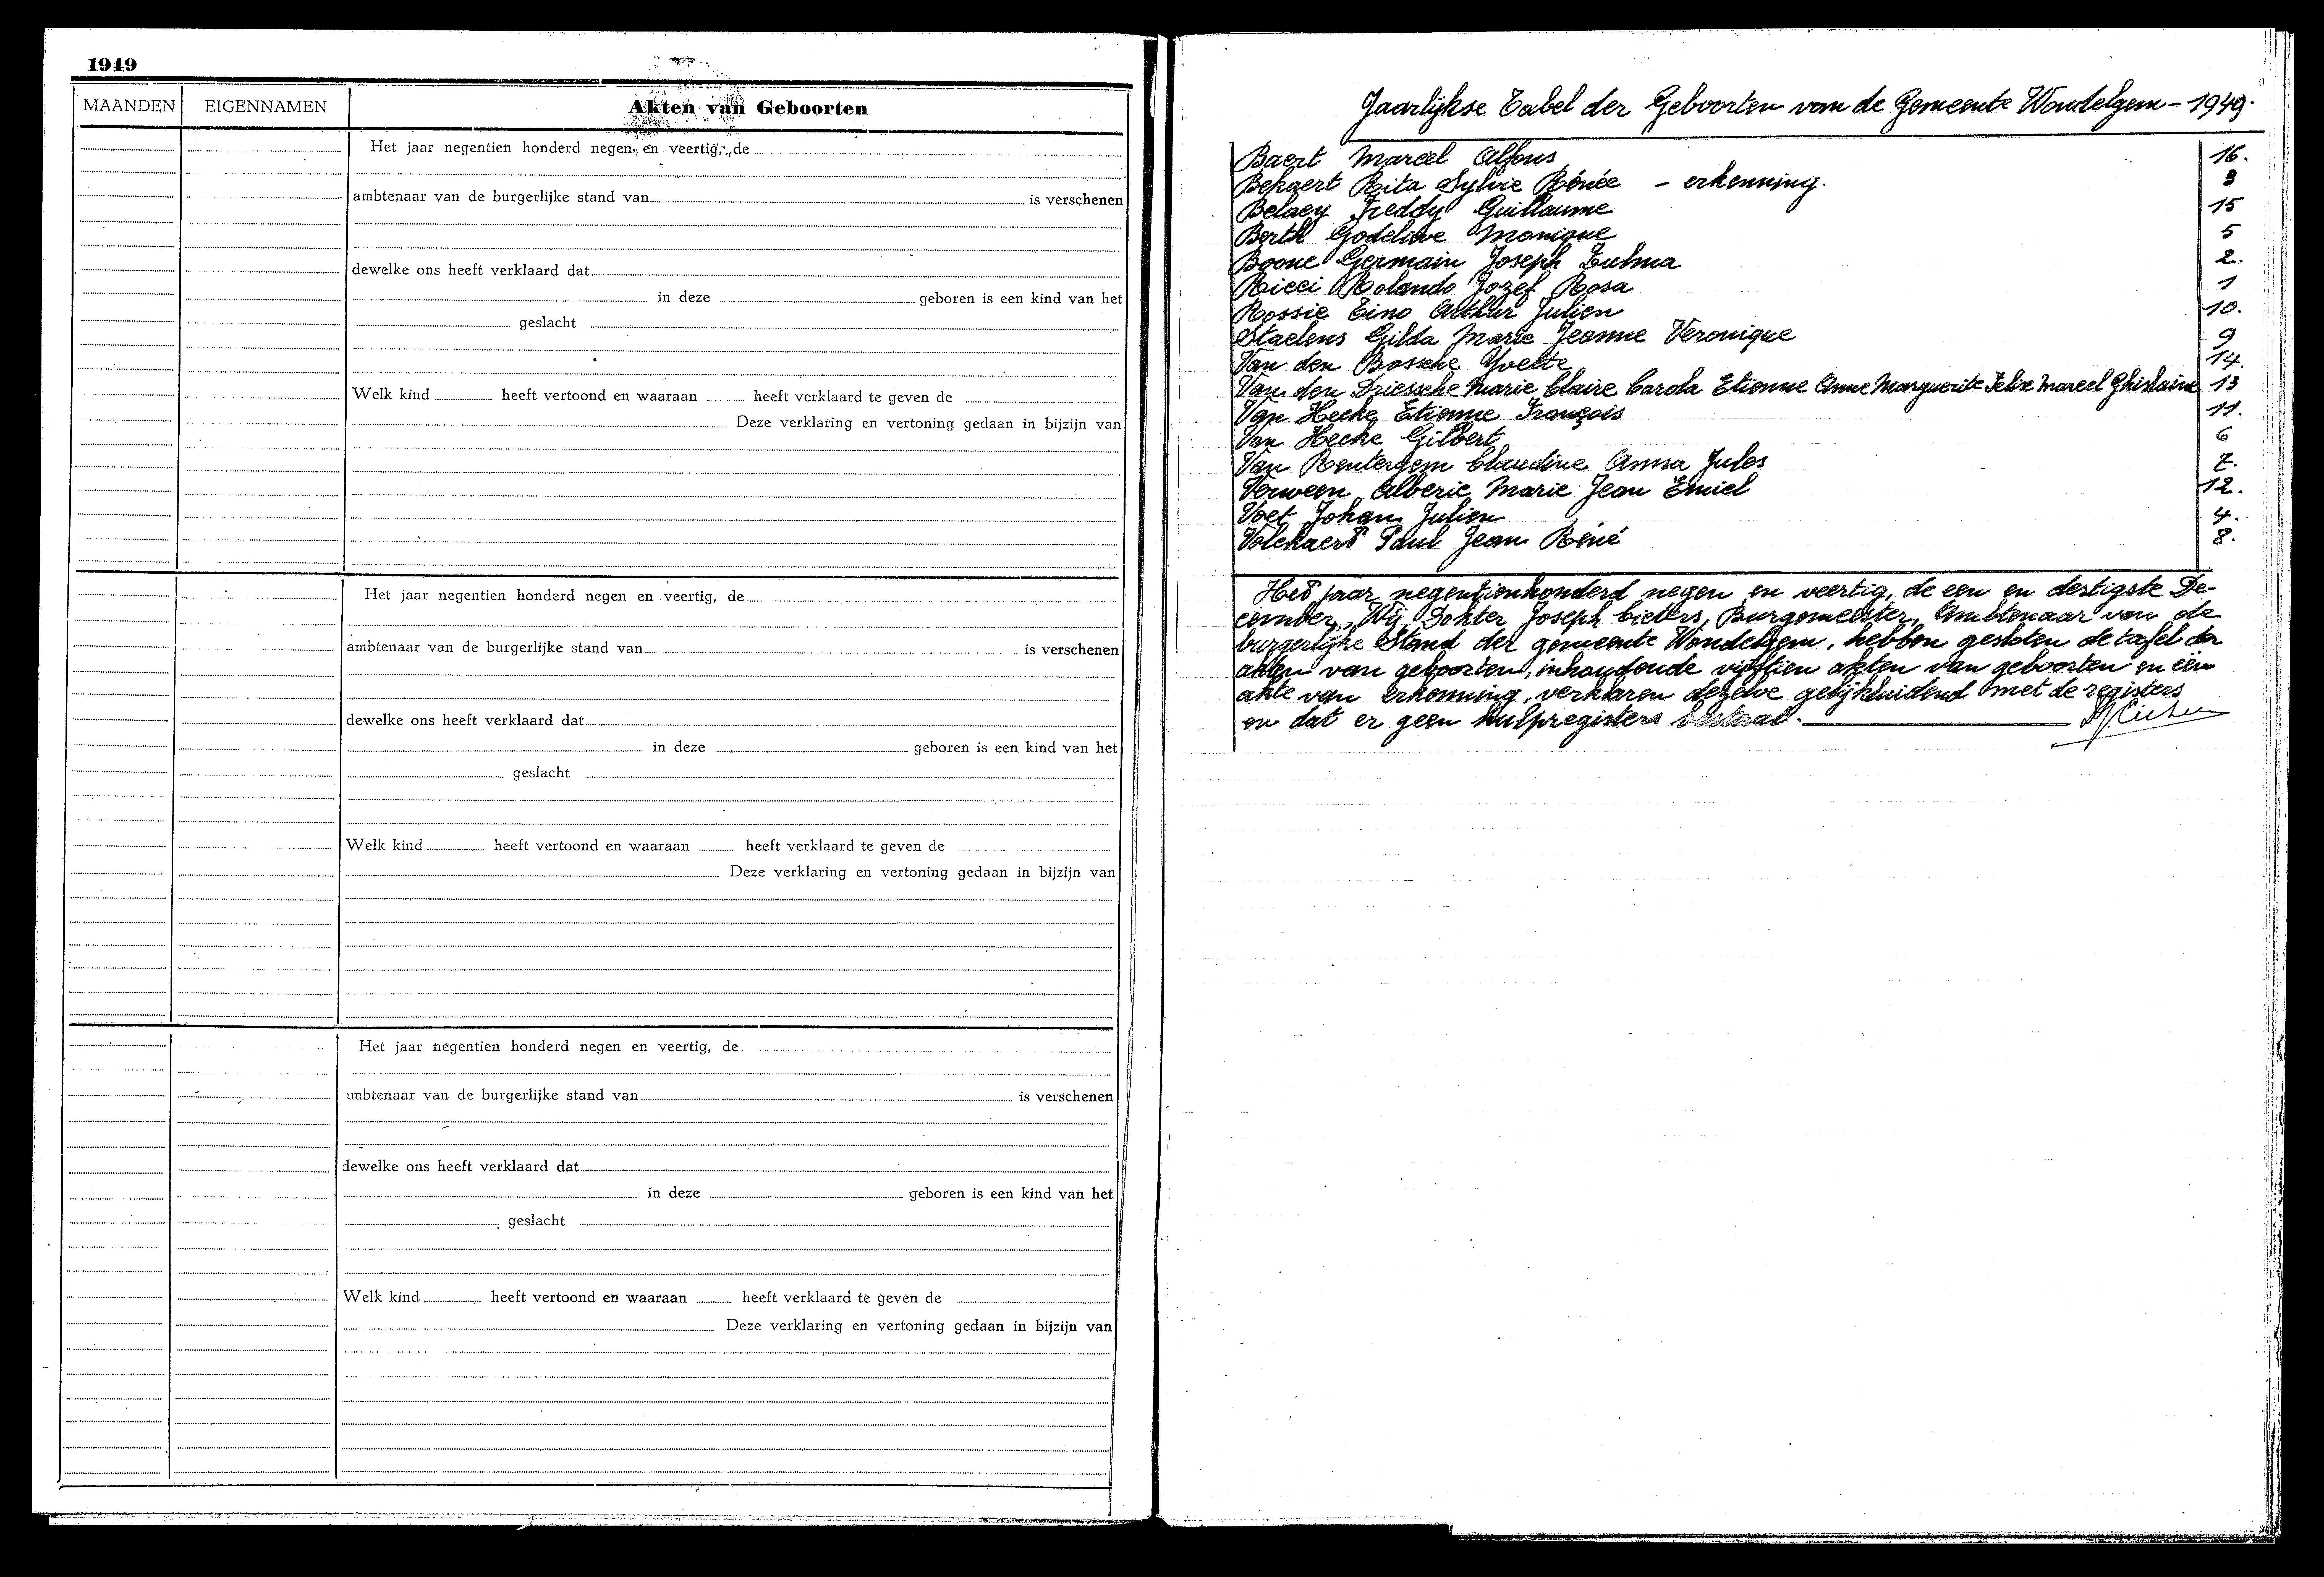 1949
MAANDEN EIGENNAMEN Akten van Geboorten
Het jaar negentien honderd negen en veertig, de
ambtenaar van de burgerlijke stand van is verschenen
dewelke ons heeft verklaard dat
in deze geboren is een kind van het
geslacht
Welk kind heeft vertoond en waaraan heeft verklaard te geven de
Deze verklaring en vertoning gedaan in bijzijn van
Het jaar negentien honderd negen en veertig, de
ambtenaar van de burgerlijke stand van is verschenen
dewelke ons heeft verklaard dat
in deze geboren is een kind van het
geslacht
Welk kind heeft vertoond en waaraan heeft verklaard te geven de
Deze verklaring en vertoning gedaan in bijzijn van
Het jaar negentien honderd negen en veertig, de
ambtenaar van de burgerlijke stand van is verschenen
dewelke ons heeft verklaard dat
in deze geboren is een kind van het
geslacht
Welk kind heeft vertoond en waaraan heeft verklaard te geven de
Deze verklaring en vertoning gedaan in bijzijn van
Jaarlijkse Tabel der Geboorten van de Gemeente Wondelgem - 1949.
Baert Marcel Alfons 16.
Bekaert Rita Sylvie Rénée - erkenning. 3
Belaey Freddy Guillaume 15
Berth Godelieve Monique 5
Boone Germain Joseph Zulma 2.
Ricci Rolando Jozef Rosa 1
Rossie Eino Arthur Julien 10.
Staelens Gilda Marie Jeanne Veronique 9
Van den Bossche Yvette 14.
Van den Driessche Marie Claire Carola Etienne Anne Marguerite Felix Marcel Ghislaine 13
Van Hecke Etienne François 11.
Van Hecke Gilbert 6
Van Rentergem Claudine Anna Jules 7.
Verween Alberic Marie Jean Emiel 12.
Voet Johan Julien 4.
Volckaert Paul Jean Réné 8.
Het jaar negentienhonderd negen en veertig, de een en dertigste De-
cember, Wij Dokter Joseph Cieters, Burgemeester, Ambtenaar van de
burgerlijke Stand der gemeente Wondelgem, hebben gesloten de tafel der
akten van geboorten, inhoudende vijftien akten van geboorten en een
akte van erkenning, verklaren dezelve gelijkluidend met de registers
en dat er geen hulpregisters bestaat.